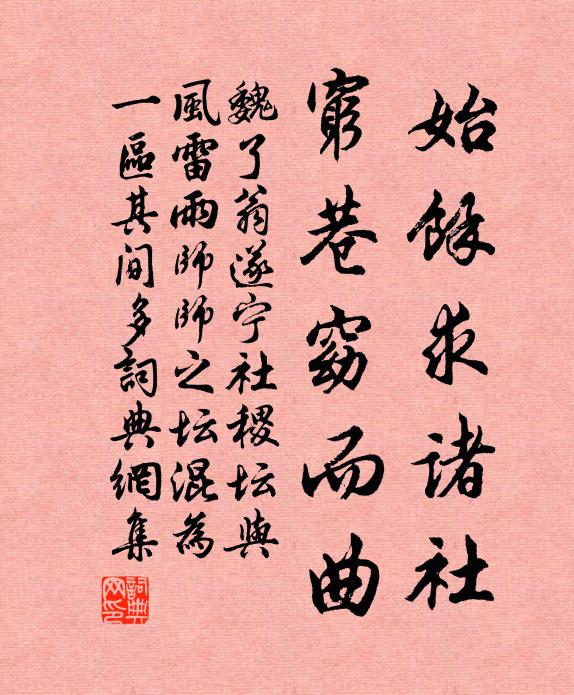 始餘求諸社
窮巷窈而曲
魏了翁遂宁社稷坛與
風雷雨師師之坛混為
一區其间多詞典網集
詞典网印